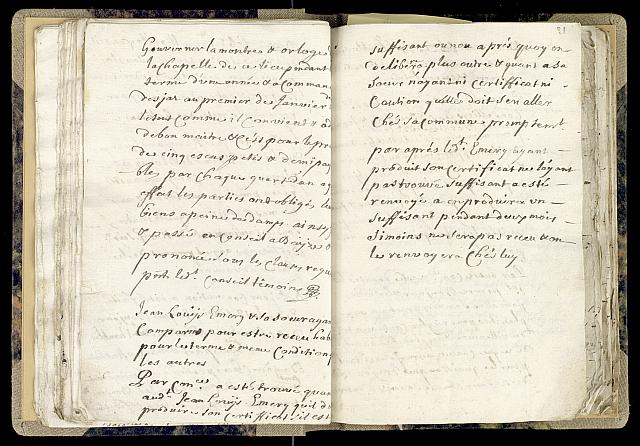 Gouverner la montre & orloge d
la chapelle de ce lieu pendant
terme d'une année & a Comman
desjas au premier de Janvier d
lesus comme il convient & a
de bon maitre & Cess pour le pr
de cinq escus petis & demi pay
bles par chaque quart dan ay
effait les parties ont obligés leu
biens a peine de damps ainsy
& passé en Conseil a
prononcé sous les clauses requ
pnts led.t Conseil témoins
Jean Louys Emery & sa soeur ayan
Comparus pour estre receu hab
pour le terme & meme Condition
les autres
Par Con.el a esté trouvé quan
aud.t Jean Louys Emery qu'il d
produire son certifficat s'il est
81
suffisant ou non aprés quoy on
deliberã plus outre & quant a sa
soeur n'ayant ni certifficat ni
Caution qu'elle doit s'en aller
Chés sa commune promptem.t
par aprés led.t Emery ayant
produit son certificat ne layant
pas trouvé suffisant a esté
renvoyé a en produire un
suffisant pendant deux mois
si moins ne sera pas receu & on
le renvoyera Chés luy